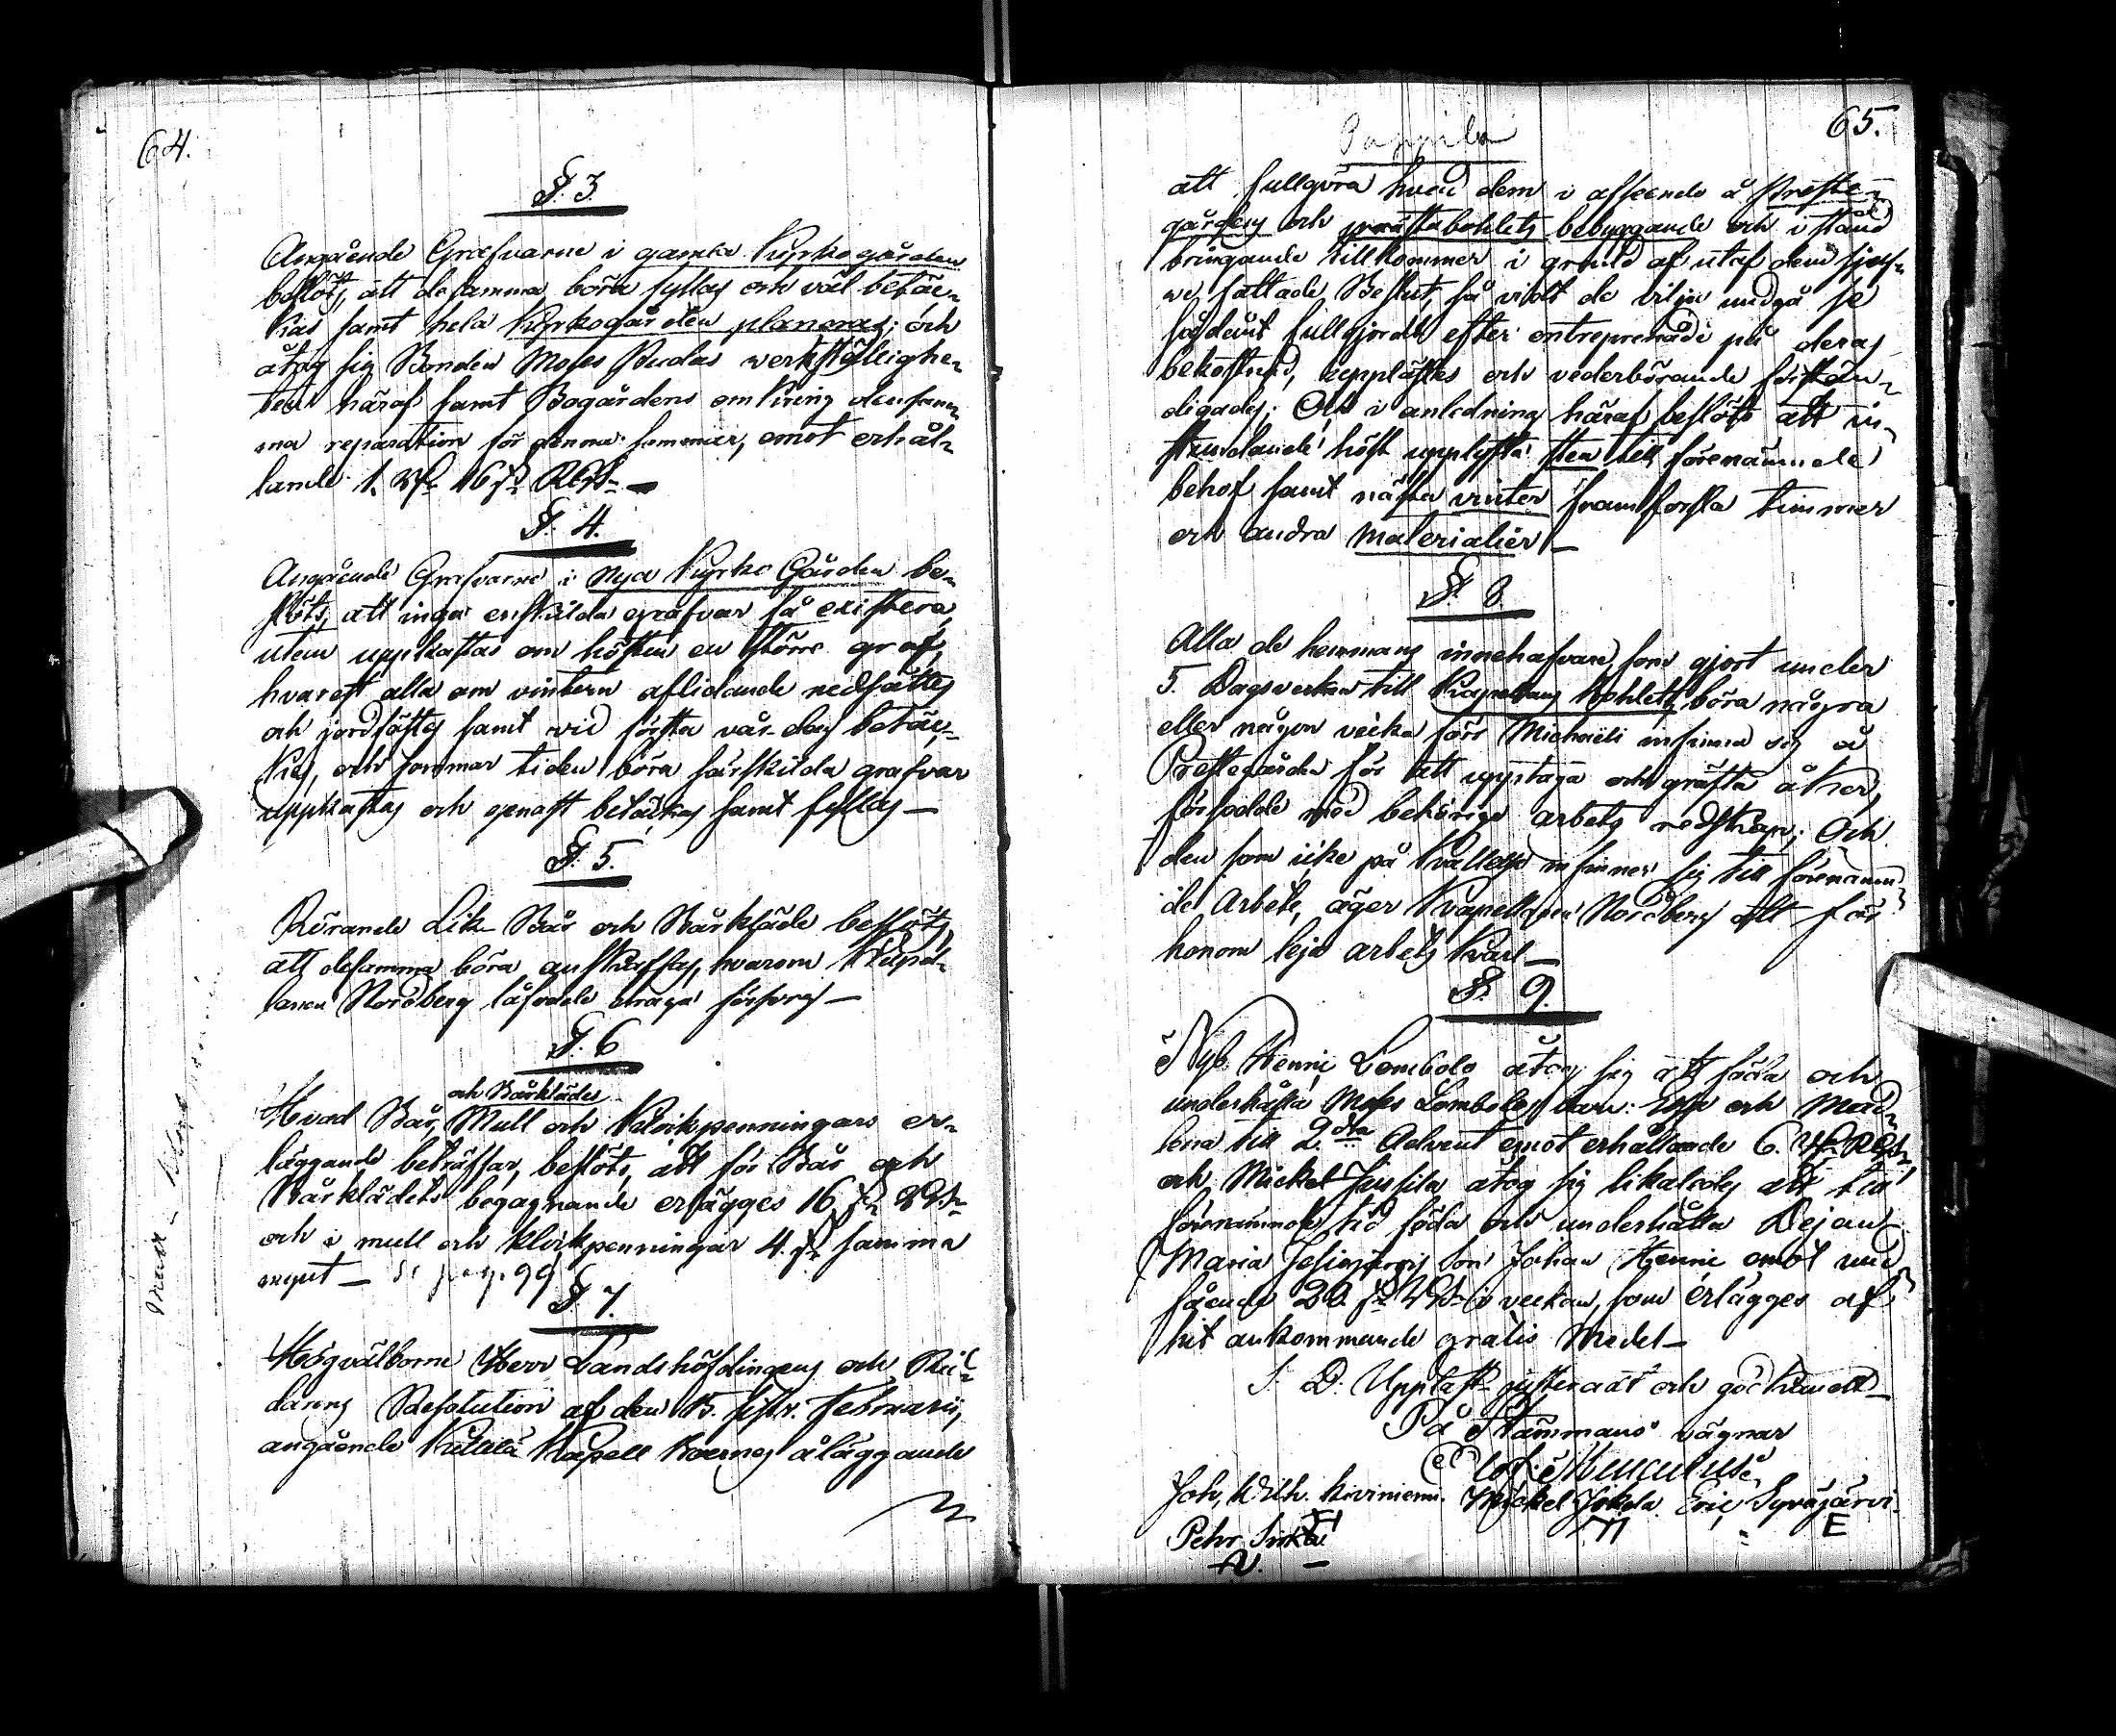 64.
§. 3.
Angående Grafvarne i gamla Kyrkogården
beslöts, att desamma böra fyllas och väl betäc-
kas samt hela Kyrkogården planeras; och
åtog sig Bonden Moses Rudas werkställighe-
ten häraf samt Bogårdens omkring densam-
ma reparation för denna sommar, emot erhål-
lande 1. Rf. 16 s.
§. 4.
Angående Grafvarne i nya Kyrko Gården be-
slöts, att inga enskilda grafvar få existera,
utan uppkastas om hösten en större graf,
hvarest alla om vintern aflidande nedsättes
och jordfästes samt vid första vår-dag betäc-
kes, och sommar tiden böra särskilda grafvar
uppkastas och genast betäckas samt fyllas —
§. 5.
Rörande Lik-Bår och Bårkläde beslöts,
att desamma böra anskaffas, hvarom Kapel-
lanen Nordberg låfvade draga försorg —
§. 6
och Bårklädes
Hvad Bår, Mull och Klockpenningars er-
läggande beträffar, beslöts, att för Bår och
Bårklädets begagnande erlägges 16
och i mull och klockpenningar 4. samma
mynt — 99
§. 7.
Högvälborne Herr Landshöfdingens och Rid-
darens Resolution af den 15. sistl. Februarii,
angående Kittilä Kapell Boernes åläggande
65.
Pappila
att fullgöra hvad dem i afseende å Preste-
gårdens och prästabohlets bebyggande och i stånd
bringande tillkommer i grund af utaf dem sjelf-
we fattade Beslut, så vidt de vilja undgå se
sådant fullgjordt efter entreprenade på deras
bekostnad, upplästes och vederbörande förstän-
digades; Och i anledning häraf beslöts att in-
stundande höst upplyfta sten till förenämnde
behof samt nästa vinter framforsla timmer
och andra materialier —
§. 8.
Alla de hemmans innehafvare, som gjort under
5. Dagsverken till Kapellans bohlet, böra några
eller någon vecka före Michaeli infinna sig å
Prestegården för att upptaga och gräfta åker,
försedde med behörige arbets redskap; Och
den som icke på kallelse infinner sig till förenämn-
de Arbete, äger Kapellanen Nordberg att för
honom leja arbets karl —
§. 9.
Nyb. Henric Lombolo åtog sig att föda och
underhålla Moses Lombolos barn: och Mad-
lena till 2.dra Advent emot erhållande 6.
och Mickel åtog sig likaledes att till
förenämnde tid föda och underhålla Pejan
Maria son Johan Henric emot und-
fående 20. i veckan, som erlägges af
hit ankommande gratis Medel —
S. D. Uppläst justeradt och godkändt —
På Stämmans vägnar
Joh. Wilh. Kiviniemi. Mickel Jokela Eric Syväjärvi.
Pehr Sirkka